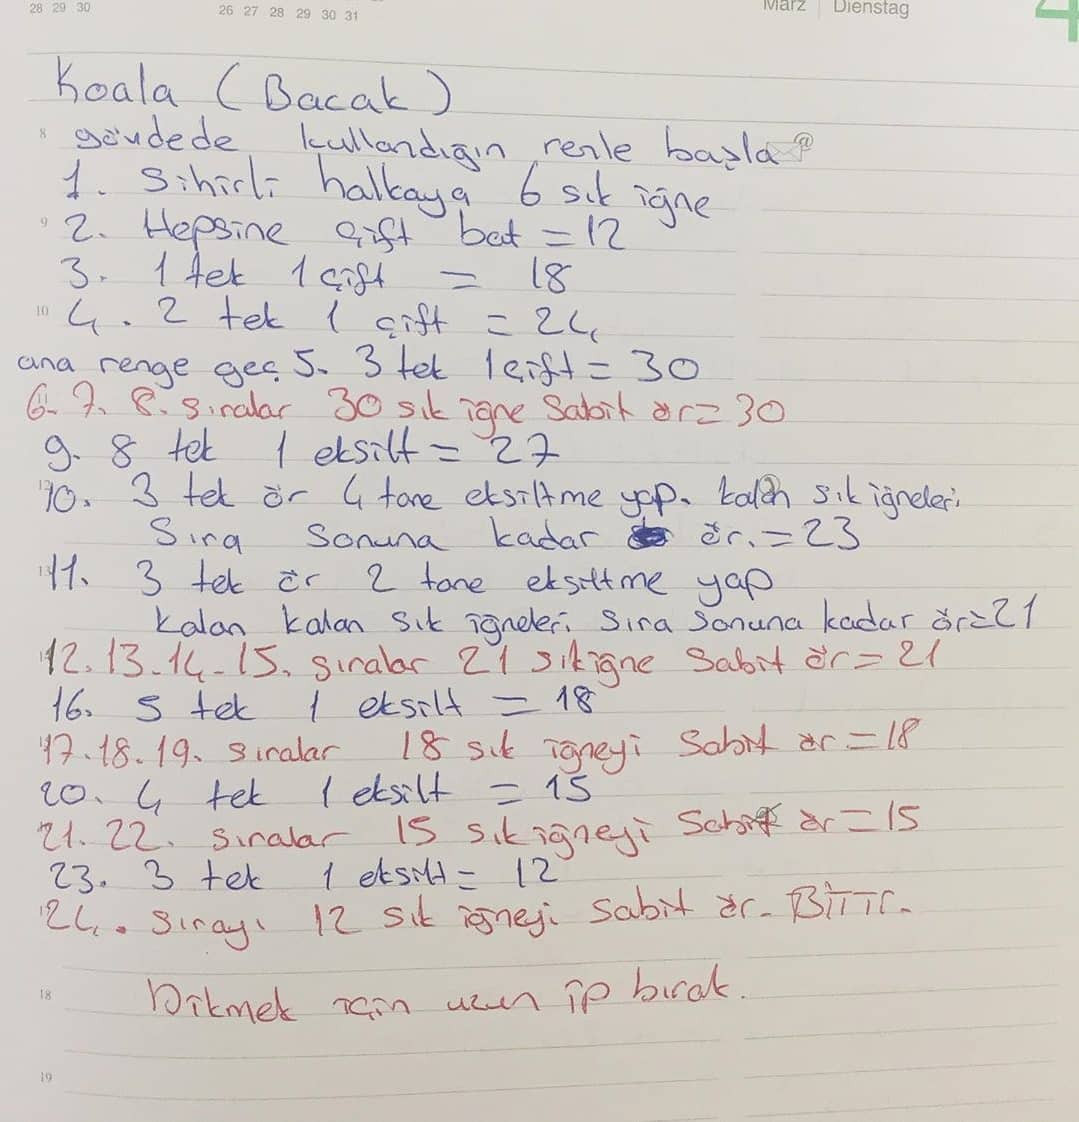 28 29 30
26 27 28 29 30 31
März Dienstag
4
Koala (Bacak)
8 gövdede kullandığın renle başla
1. Sihirli halkaya 6 sık iğne
9 2. Hepsine çift bat = 12
3. 1 tek 1 çift = 18
10 4. 2 tek 1 çift = 24
ana renge geç 5. 3 tek 1 çift = 30
6. 7. 8. sıralar 30 sık iğne Sabit ör = 30
9. 8 tek 1 eksilt = 27
10. 3 tek ör 4 tane eksiltme yap. kalan sık iğneleri
Sıra Sonuna kadar ör. = 23
11. 3 tek ör 2 tane eksiltme yap
kalan kalan sık iğneleri Sıra Sonuna kadar ör = 21
12. 13. 14. 15. sıralar 21 sık iğne Sabit ör = 21
16. 5 tek 1 eksilt = 18
17. 18. 19. sıralar 18 sık iğneyi Sabit ör = 18
20. 4 tek 1 eksilt = 15
21. 22. sıralar 15 sık iğneyi Sabit ör = 15
23. 3 tek 1 eksilt = 12
24. Sırayı 12 sık iğneyi Sabit ör. BİTTİ.
18 Dikmek için uzun ip bırak.
19